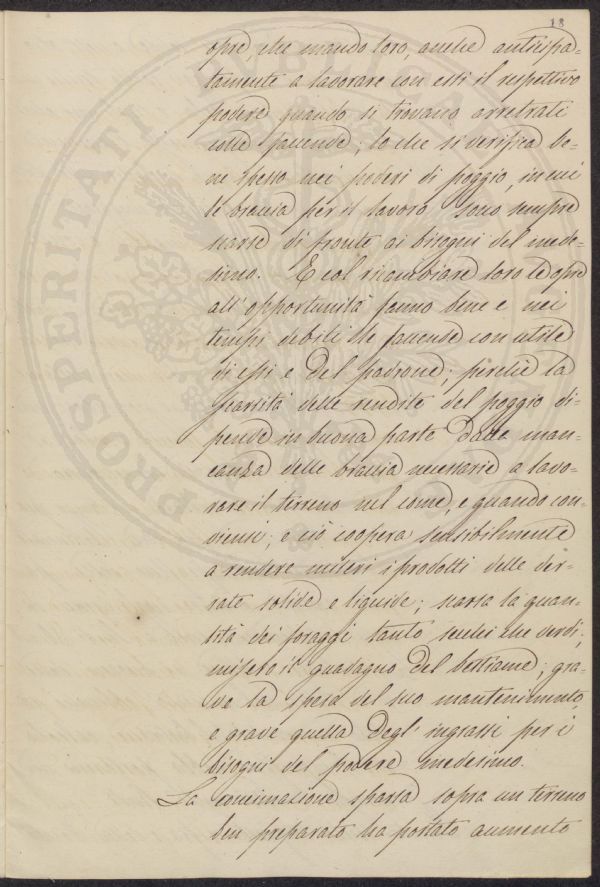 18
opre, che mando loro, anche anticipa-
tamente a lavorare con essi il respettivo
podere quando si trovano arretrati
colle faccende; lo che si verifica be-
ne spesso nei poderi di poggio, in cui
le braccia per il lavoro sono sempre
scarse di fronte ai bisogni del mede-
simo. E col ricambiare loro le opre
all'opportunità fanno bene e nei
tempi debiti le faccende con utile
di essi e del padrone; perchè la
scarsità delle rendite del poggio di-
pende in buona parte dalla man-
canza delle braccia necessarie a lavo-
rare il terreno nel come, e quando con-
viensi; e ciò coopera sensibilmente
a rendere miseri i prodotti delle der-
rate solide e liquide; scarsa la quan-
tità dei foraggi tanto secchi che verdi;
misero il guadagno del bestiame; gra-
ve la spesa del suo mantenimento,
e grave quella degl'ingrassi per i
bisogni del podere medesimo.
La concimazione sparsa sopra un terreno
ben preparato ha portato aumento
PROSPERITATI PVBLICAE